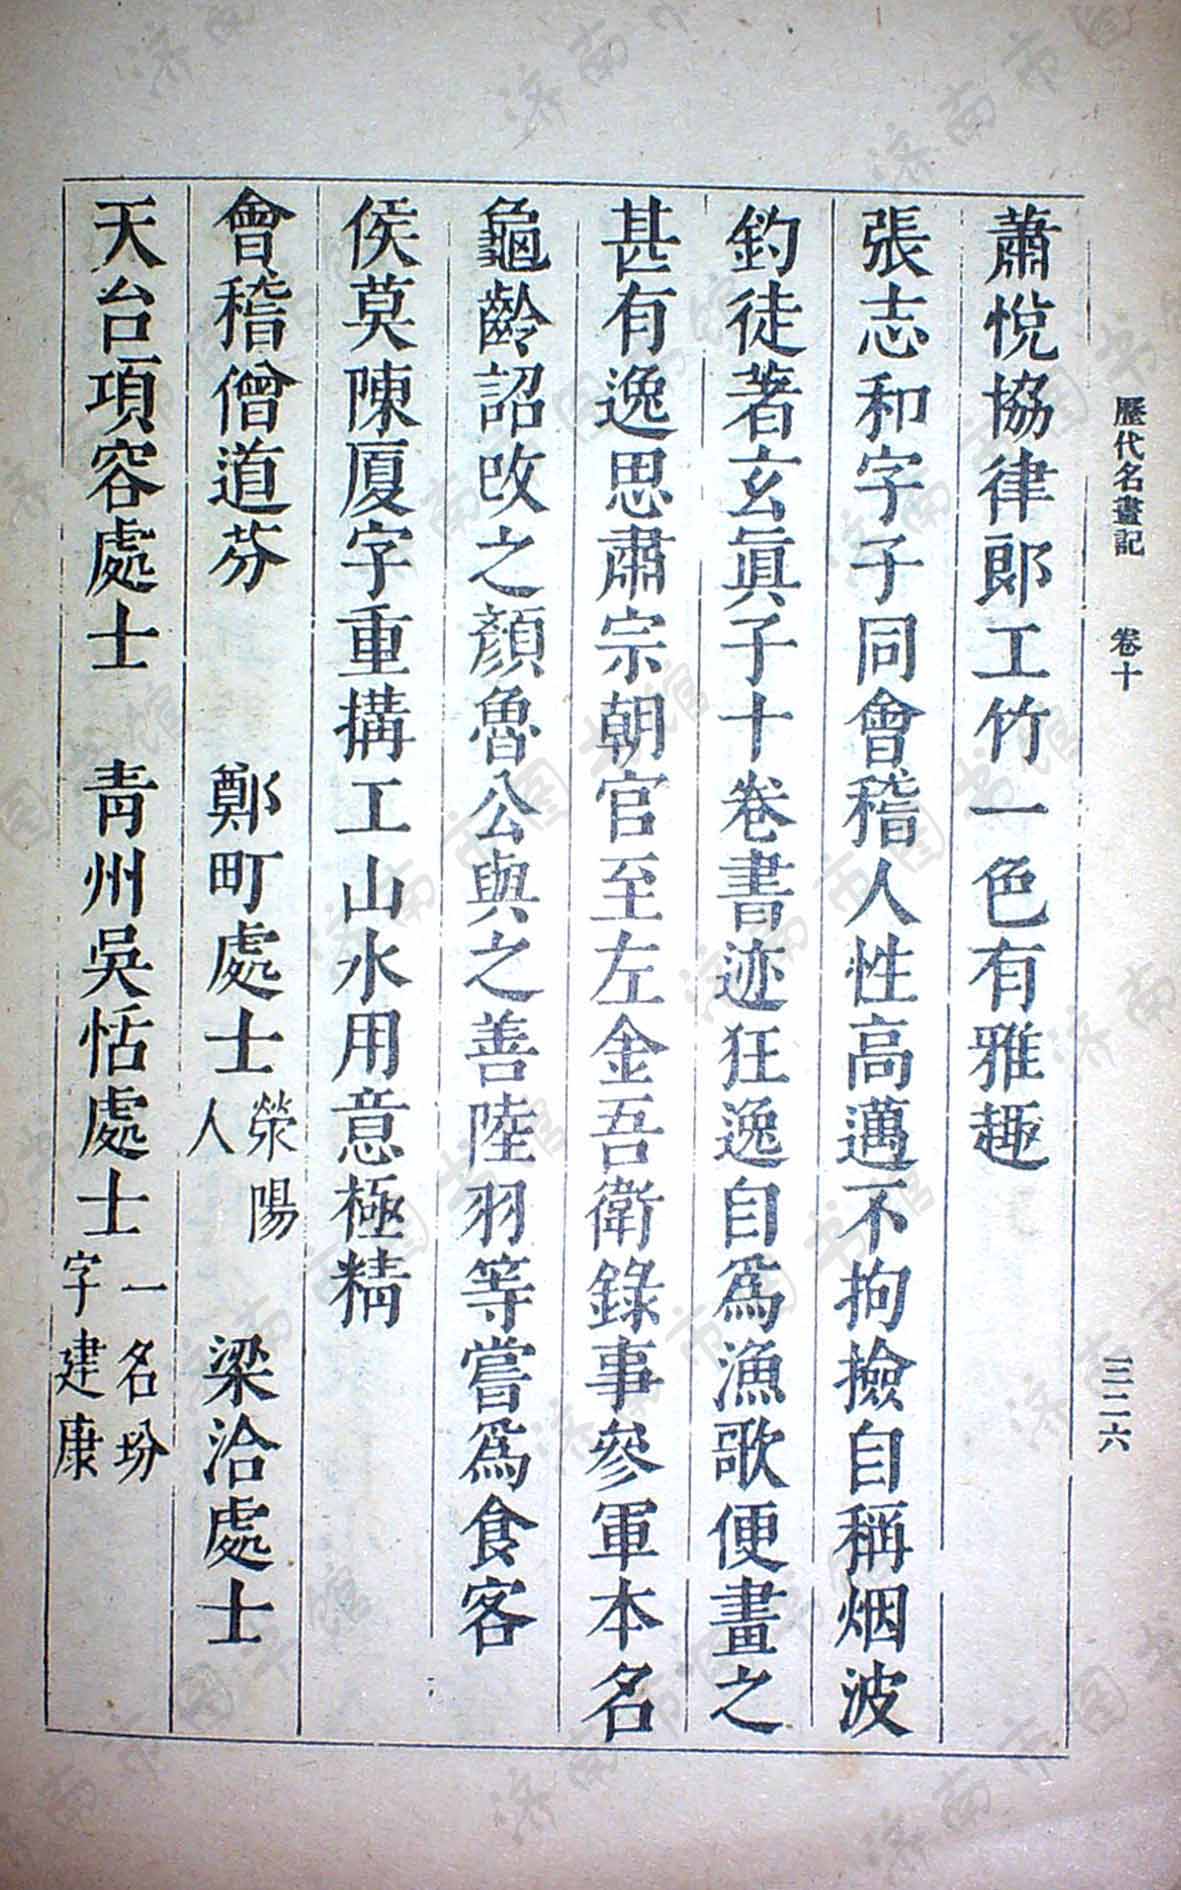 歷代名畫記　卷十　三二六
蕭悅協律郎工竹一色有雅趣
張志和字子同會稽人性高邁不拘撿自稱烟波
釣徒著玄眞子十卷書迹狂逸自爲漁歌便畫之
甚有逸思肅宗朝官至左金吾衛錄事參軍本名
龜齡詔改之顏魯公與之善陸羽等嘗爲食客
侯莫陳厦字重搆工山水用意極精
會稽僧道芬　鄭町處士滎陽人　梁洽處士
天台項容處士　靑州吳恬處士一名玢字建康
济南市图书馆